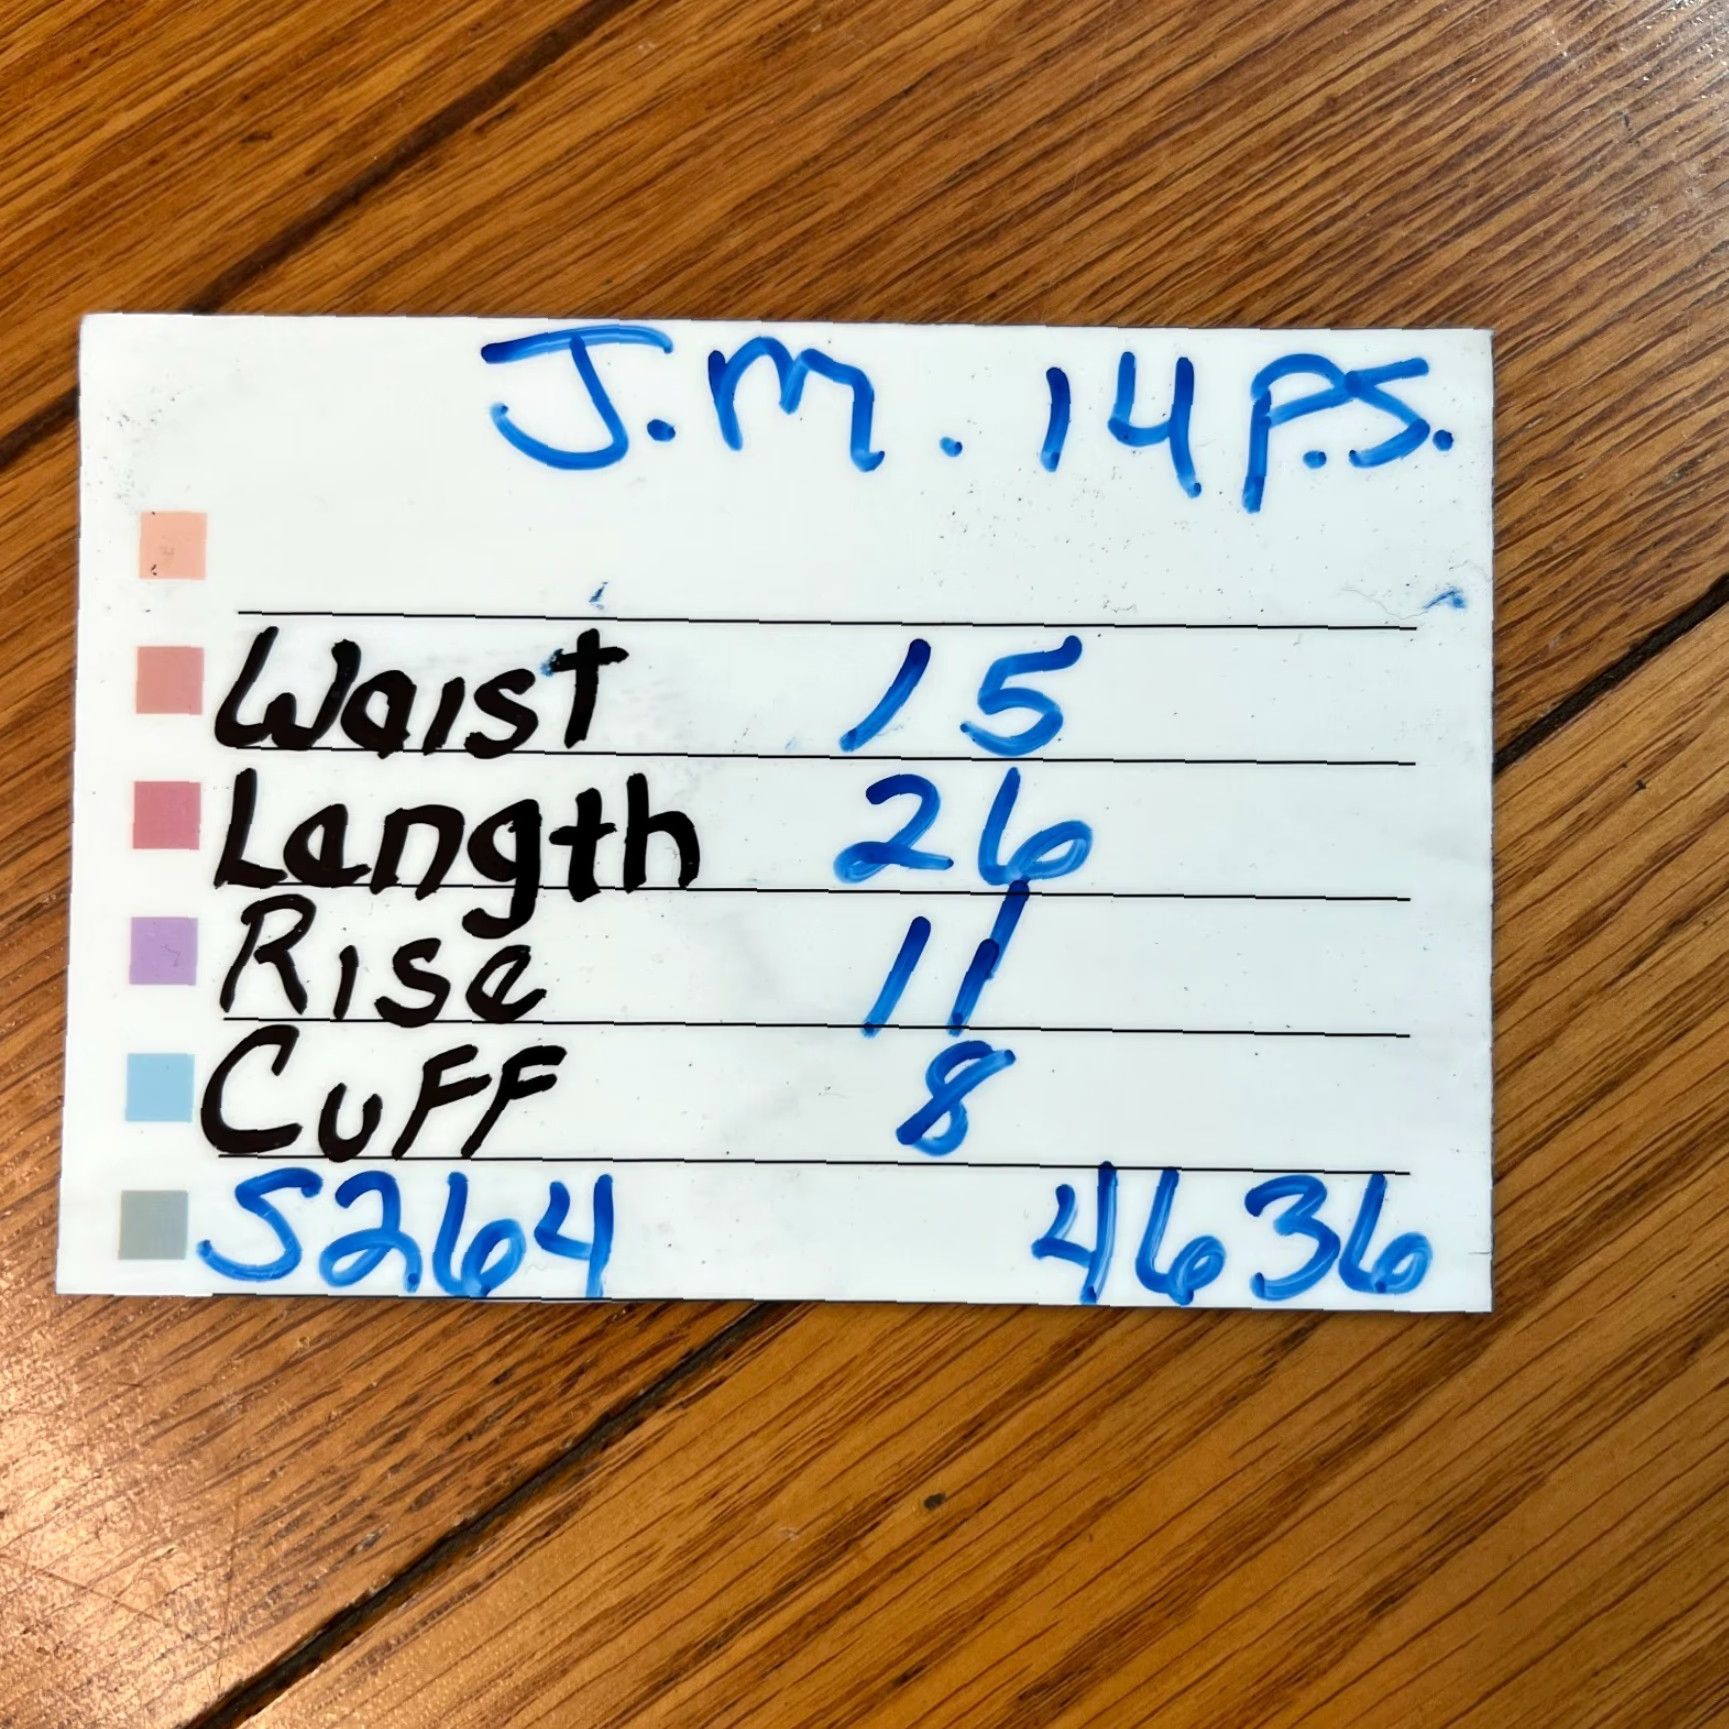 J.M. 14 P.S.
Waist 15
Length 26
Rise 11
Cuff 8
S264 4636